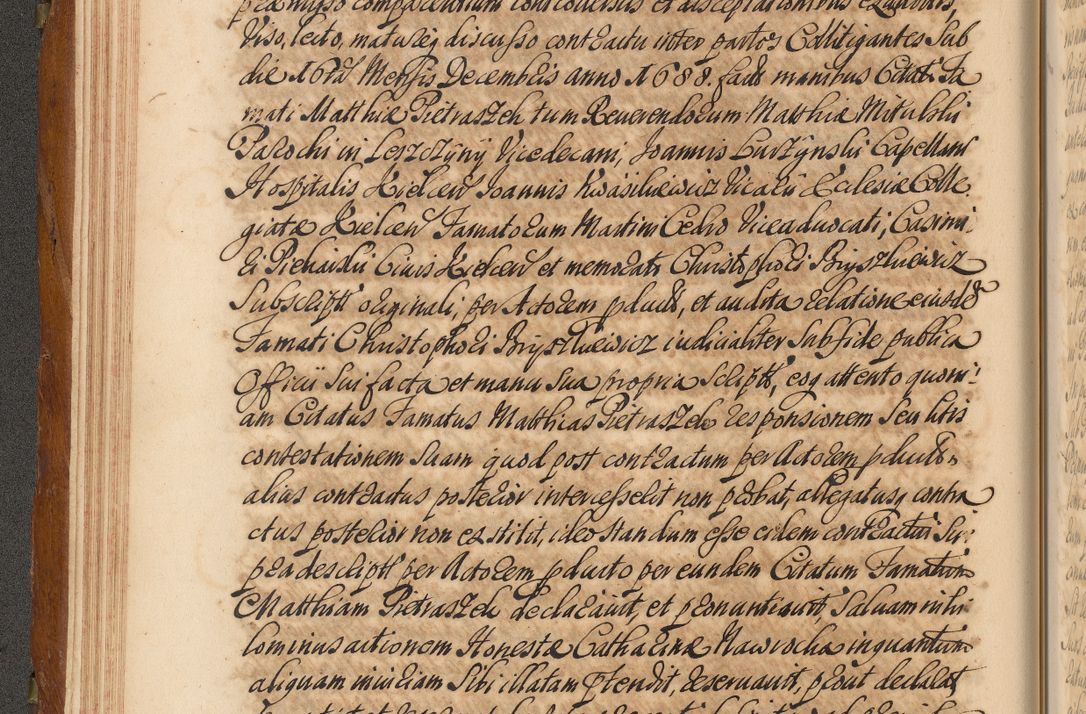 præmisso comparentium controversiis et disceptationibus exauditis,
Viso, lecto, maturéq discusso contractu inter partes Collitigantes sub
die 16tâ Mensis Decembris anno 1688. facto manibus Citati Fa
mati Matthiæ Pietraszek tum Reverendorum Matthiæ Mitulski
Parochi in Leszczyny Vicedecani, Joannis Curzynski Capellani
Hospitalis Kielcen Joannis Kwasikiewicz Vicarii Ecclesiæ Colle
giatæ Kielcen Famatorum Martini Cedro Viceadvocati, Casimi
ri Piekarski Civis Kielcen et memorati Christophori Bryszkiewicz
subscript originali, per Actorem pduct, et audita relatione eiusdē
Famati Christophori Bryszkiewicz iudicialiter sub fide publica
Officii sui facta et manu sua propria script, eoq attento quoni
am Citatus Famatus Matthias Pietraszek responsionem seu litis
contestationem suam quod post contractum per Actorem pduct
alius contractus posterior intercesserit non probat, allegatusq contra
ctus posterior non exstitit, ideo standum esse eidem contractui su
pra descript per Actorem pducto per eundem Citatum Famatum
Matthiam Pietraszek declaravit, et pronuntiavit, salvam nihi
lominus actionem Honestæ Catharinæ Nawrocka inquantum
aliquam iniuriam sibi illatam ptendit, reservavit, prout declarat,